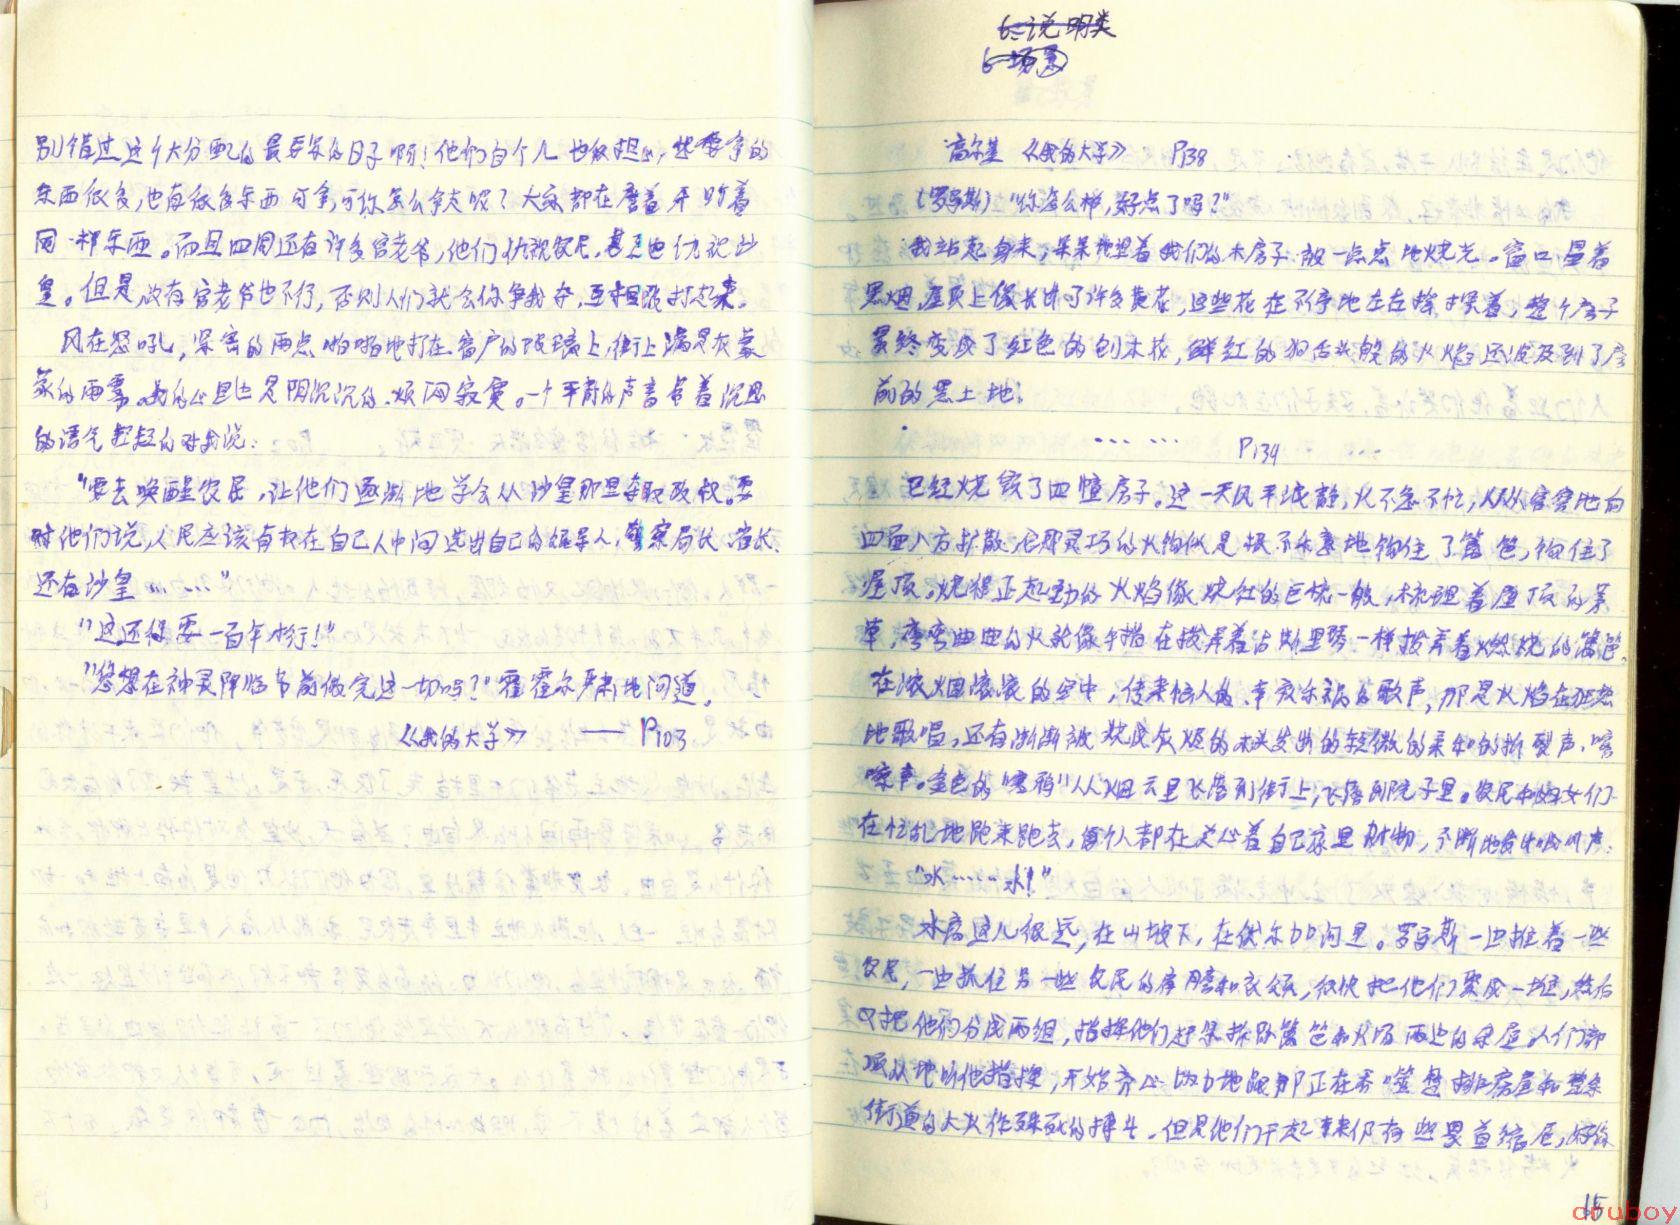 别错过这个大分配的最要紧的日子啊！他们自个儿也很担心，想要争的
东西很多，也有很多东西可争，可你怎么争夺呢？大家都在磨着牙盯着
同一样东西。而且四周还有许多官老爷，他们仇视农民，甚至也仇视沙
皇。但是，没有官老爷也不行，否则人们就会你争我夺，互相殴打起来。
风在怒吼，深密的雨点啪啪地打在窗户的玻璃上，街上满是灰蒙
蒙的雨雾。我的心里也是阴沉沉的、烦闷寂寞。一个平静的声音带着沉思
的语气轻轻的对我说：
“要去唤醒农民，让他们逐渐地学会从沙皇那里夺取政权。要
对他们说，人民应该有权在自己人中间选出自己的领导人，警察局长、省长、
还有沙皇……”
“这还得要一百年才行！”
“您想在神灵降临节前做完这一切吗？”霍霍尔严肃地问道。
《我的大学》 —— P103
6.说明类
6.场景
高尔基 《我的大学》 P138
（罗马斯）“你怎么样，好点了吗？”
我站起身来，呆呆地望着我们的木房子被一点点地烧光。窗口冒着
黑烟，屋顶上像长出了许多黄花，这些花在不停地左右摇摆着，整个房子
最终变成了红色的刨木花，鲜红的狗舌头般的火焰还波及到了房
前的黑土地；
…… P139
已经烧毁了四幢房子。这一天风平浪静，火不急不忙，从从容容地向
四面八方扩散，它那灵巧的火钩似是极不乐意地钩住了篱笆，钩住了
屋顶。烧得正起劲的火焰像烧红的巨梳一般，梳理着屋顶的茅
草，弯弯曲曲的火就像手指在拨弄着古斯里琴一样拨弄着燃烧的篱笆。
在浓烟滚滚的空中，传来恼人的、幸灾乐祸的歌声，那是火焰在狂热
地歌唱，还有渐渐被烧成灰烬的木头发出的轻微的柔和的折裂声、喀
嚓声。金色的“寒鸦”从烟云里飞落到街上，飞落到院子里。农民和妇女们
在忙乱地跑来跑去，每个人都在关心着自己家里财物，不断地发出吵叫声：
“水……水！”
水离这儿很远，在山坡下，在伏尔加河里。罗马斯一边推着一些
农民，一边抓住另一些农民的肩膀和衣领，很快把他们聚成一堆，然后
又把他们分成两组，指挥他们赶来拆除篱笆和火场两边的杂屋。人们都
顺从地听他指挥，开始齐心协力地跟那正在吞噬整排房屋和整条
街道的大火作殊死的搏斗。但是他们干起来仍有些畏首缩尾，好像
15
druboy